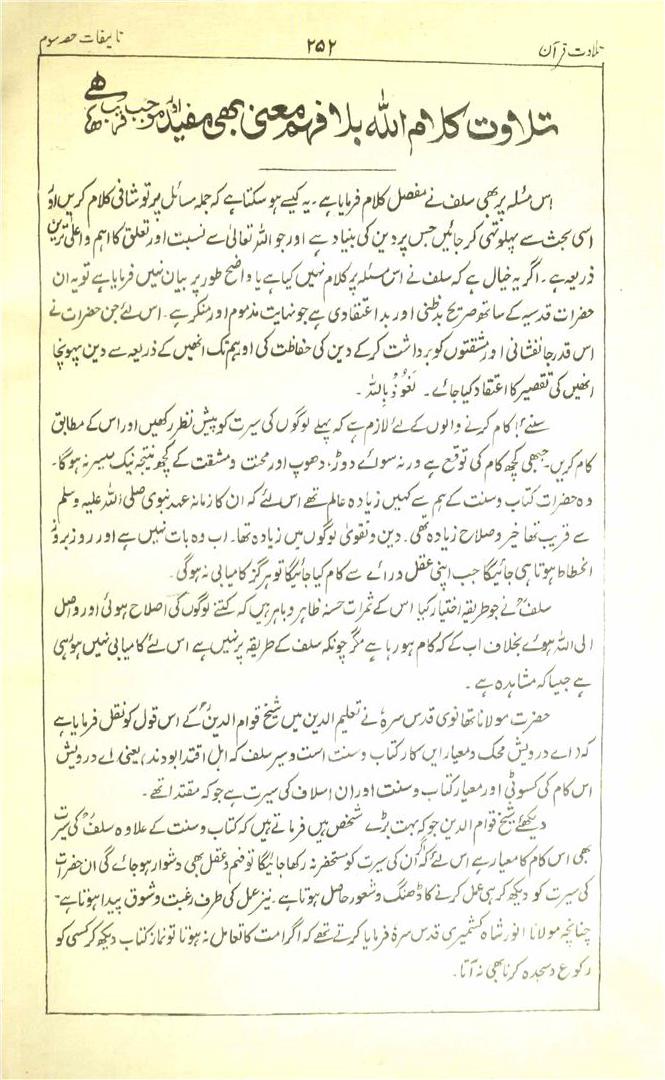 تلاوت قرآن ۲۵۲ تالیفات حصہ سوم
تلاوت کلام اللہ بلا فہم معنی بھی مفید اور موجب قرب ہے
اس مسئلہ پر بھی سلف نے مفصل کلام فرمایا ہے۔ یہ کیسے ہو سکتا ہے کہ جملہ مسائل پر تو شافی کلام کریں اور
اسی بحث سے پہلو تہی کر جائیں جس پر دین کی بنیاد ہے اور جو اللہ تعالیٰ سے نسبت اور تعلق کا اہم و اعلیٰ ترین
ذریعہ ہے۔ اگر یہ خیال ہے کہ سلف نے اس مسئلہ پر کلام نہیں کیا ہے یا واضح طور پر بیان نہیں فرمایا ہے تو یہ ان
حضرات قدسیہ کے ساتھ صریح بدظنی اور بد اعتقادی ہے جو نہایت مذموم اور منکر ہے۔ اس لئے جن حضرات نے
اس قدر جانفشانی اور مشقتوں کو برداشت کر کے دین کی حفاظت کی اور ہم تک انھیں کے ذریعہ سے دین پہونچا
انھیں کی تقصیر کا اعتقاد کیا جائے۔ نَعُوْذُ بِاللہ۔
سنئے! کام کرنے والوں کے لئے لازم ہے کہ پہلے لوگوں کی سیرت کو پیش نظر رکھیں اور اس کے مطابق
کام کریں۔ جبھی کچھ کام کی توقع ہے ورنہ سوائے دوڑ، دھوپ اور محنت و مشقت کے کچھ نتیجہ نیک میسر نہ ہوگا۔
وہ حضرات کتاب و سنت کے ہم سے کہیں زیادہ عالم تھے اس لئے کہ ان کا زمانہ عہد نبوی صلی اللہ علیہ وسلم
سے قریب تھا خیر و صلاح زیادہ تھی۔ دین و تقویٰ لوگوں میں زیادہ تھا۔ اب وہ بات نہیں ہے اور روز بروز
انحطاط ہوتا ہی جائیگا جب اپنی عقل و رائے سے کام کیا جائیگا تو ہرگز کامیابی نہ ہوگی۔
سلفؒ نے جو طریقہ اختیار کیا اس کے ثمرات حسنہ ظاہر و باہر ہیں کہ کتنے لوگوں کی اصلاح ہوئی اور واصل
الی اللہ ہوئے بخلاف اب کے کہ کام ہو رہا ہے مگر چونکہ سلف کے طریقہ پر نہیں ہے اس لئے کامیابی نہیں ہو رہی
ہے جیسا کہ مشاہدہ ہے۔
حضرت مولانا تھانوی قدس سرہٗ نے تعلیم الدین میں شیخ قوام الدینؒ کے اس قول کو نقل فرمایا ہے
کہ (اے درویش محک و معیار ایں کار کتاب و سنت است و سیر سلف کہ اہل اقتدا بودند) یعنی اے درویش
اس کام کی کسوٹی اور معیار کتاب و سنت اور ان اسلاف کی سیرت ہے جو کہ مقتدا تھے۔
دیکھئے شیخ قوام الدین جو کہ بہت بڑے شخص ہیں فرماتے ہیں کہ کتاب و سنت کے علاوہ سلفؒ کی سیرت
بھی اس کام کا معیار ہے اس لئے کہ اگر ان کی سیرت کو مستحضر نہ رکھا جائیگا تو فہم و عقل بھی دشوار ہو جائے گی ان حضرات
کی سیرت کو دیکھ کر ہی عمل کرنے کا ڈھنگ و شعور حاصل ہوتا ہے۔ نیز عمل کی طرف رغبت و شوق پیدا ہوتا ہے۔
چنانچہ مولانا انور شاہ کشمیری قدس سرہٗ فرمایا کرتے تھے کہ اگر امت کا تعامل نہ ہوتا تو نماز کتاب دیکھ کر کسی کو
رکوع و سجدہ کرنا بھی نہ آتا۔